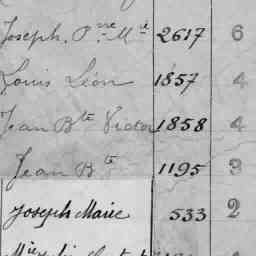 Joseph. Pre. Mie 2617 6
Louis Léon 1857 4
Jean Bte Victor 1858 4
Jean Bte 1195 3
Joseph Marie 533 2
Mie